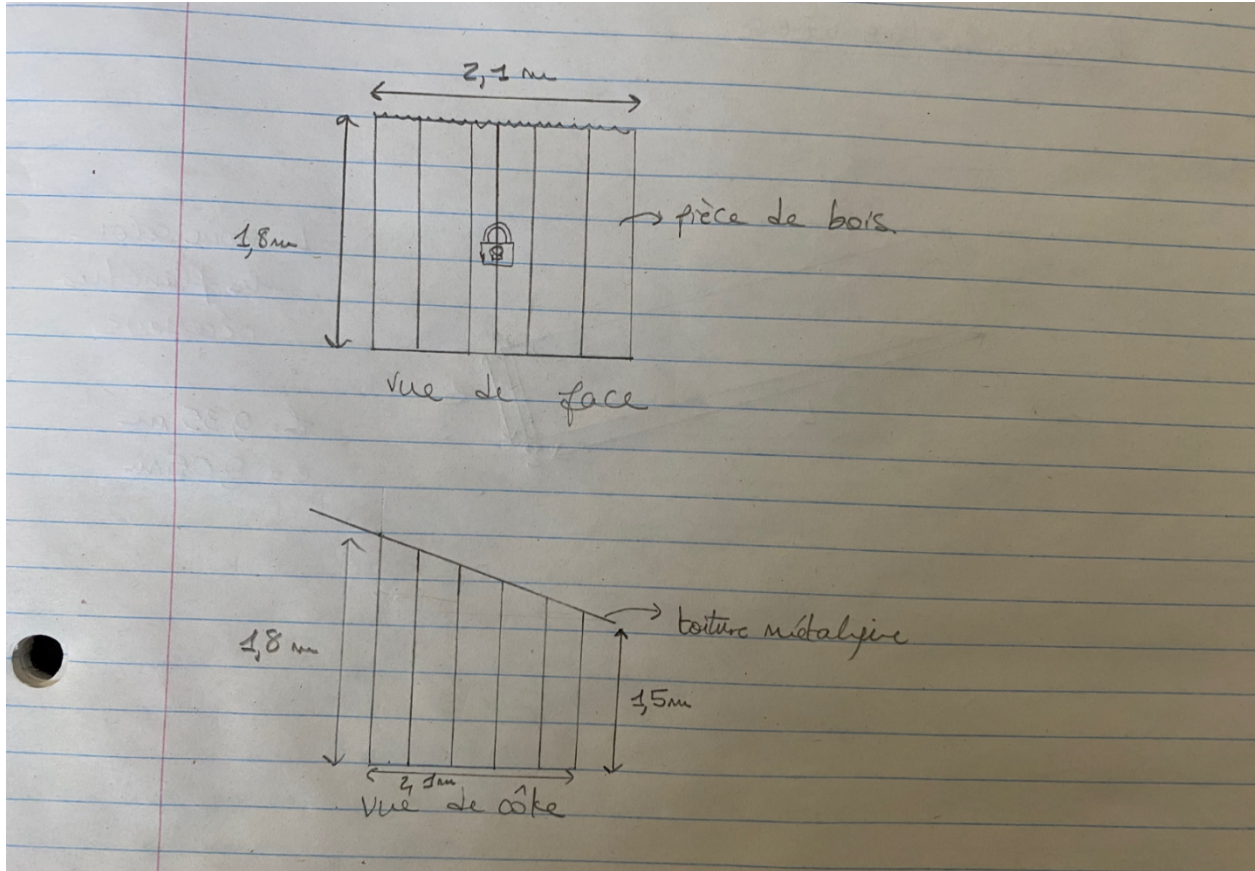 2,1 m
1,8m
pièce de bois.
vue de face
1,8 m
toiture métalique
1,5m
2,1m
vue de côte